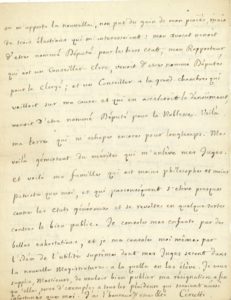 on m'apporte la nouvelle, non pas du gain de mon procès, mais
de trois élections qui m'intéressaient : mon avocat venoit
d'etre nommé Député pour le tiers état ; mon Rapporteur
qui est un Conseiller Clerc, venoit d'etre nommé Député
pour le Clergé ; et un Conseiller de grand chambre qui
veilloit sur ma cause et qui en accéléroit le dénouement
venoit d'etre nommé Député pour la Noblesse. Voilà
ma terre qui m'échape encore pour longtemps. Me
voilà gémissant du mérite qui m'enlève mes Juges.
et voilà ma famille qui est moins philosophe et moins
patriote que moi, et qui s'élève presque
contre les états généraux et se révolte en quelque sorte
contre le bien public. Je console mes enfants par de
belles exhortations, et je me console moi même par
l'idée de l'utilité suprême dont mes Juges seront dans
la nouvelle Magistrature
supplie, Monsieur, de vouloir bien publier ma
qu'elle serve d'exemple à tous les plaideurs qui
infortune que moi. J'ai l'honneur Cerutti